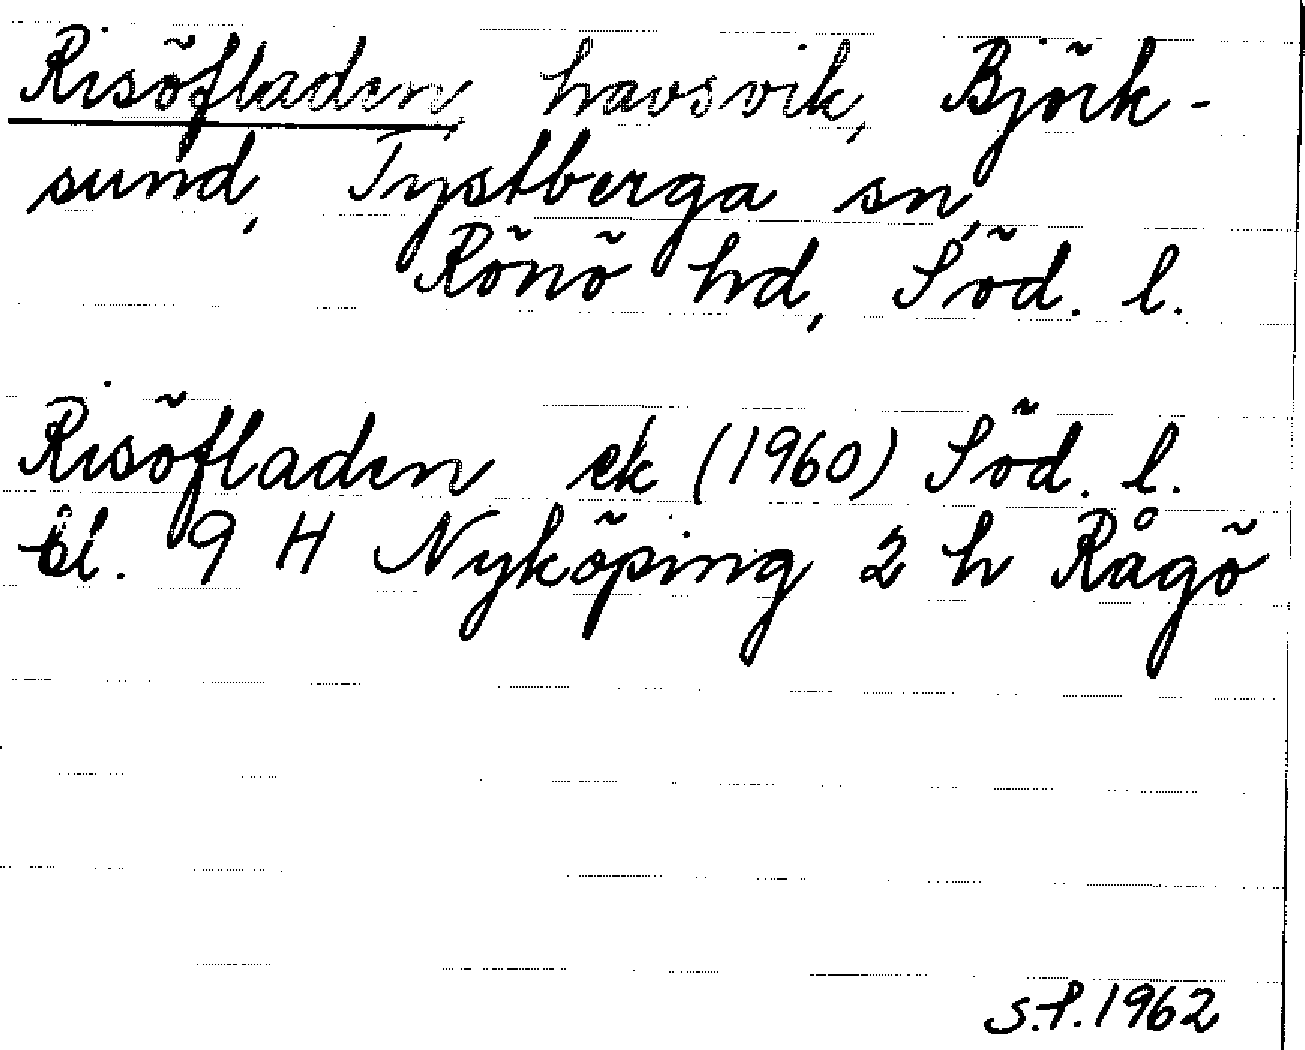 Risöfladen, havsvik, Björk-
sund, Tystberga sn,
Rönö hd, Söd. l.
Risöfladen ek (1960) Söd. l.
bl. 9 H Nyköping 2 h Rågö
S.P. 1962